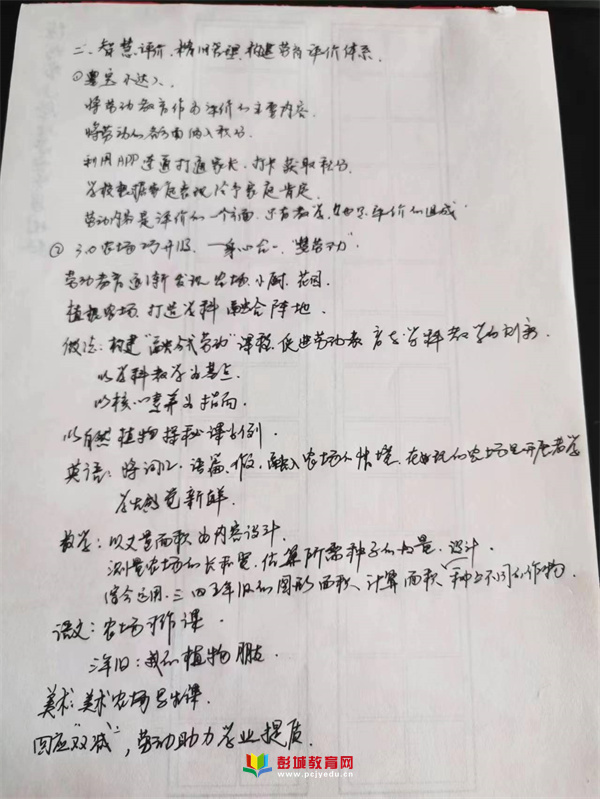 二、智慧评价,精细管理,构建劳育评价体系.
将劳动教育作为评价的主要内容.
将劳动的各方面纳入积分.
利用APP 打通家长,打卡获取积分.
学校根据家庭表现给予家庭肯定.
劳动内容是评价的一个方面.
② 3.0农场巧升级,一身心合一,"双劳动力".
劳动教育逐渐发现农场、小厨、花园.
植根农场,打造学科融合阵地.
做法:构建"融合式劳动"课程,促进劳动教育在学科教学的创新.
以学科教学为基点.
以核心素养为指向.
以自然植物探秘课为例.
英语:将词汇、语篇、 融入农场的情境,在 的农场里开展教学
学生感觉新鲜.
数学:以丈量面积为内容设计.
测量农场的长和宽,估算所需种子的数量,设计.
综合运用三四五年级的图形面积,计算面积,种上不同的作物.
语文:农场习作课.
三年级:我的植物朋友.
美术:美术农场写生课.
回应"双减",劳动助力学业提质.
彭城教育网
www.pcjyedu.cn